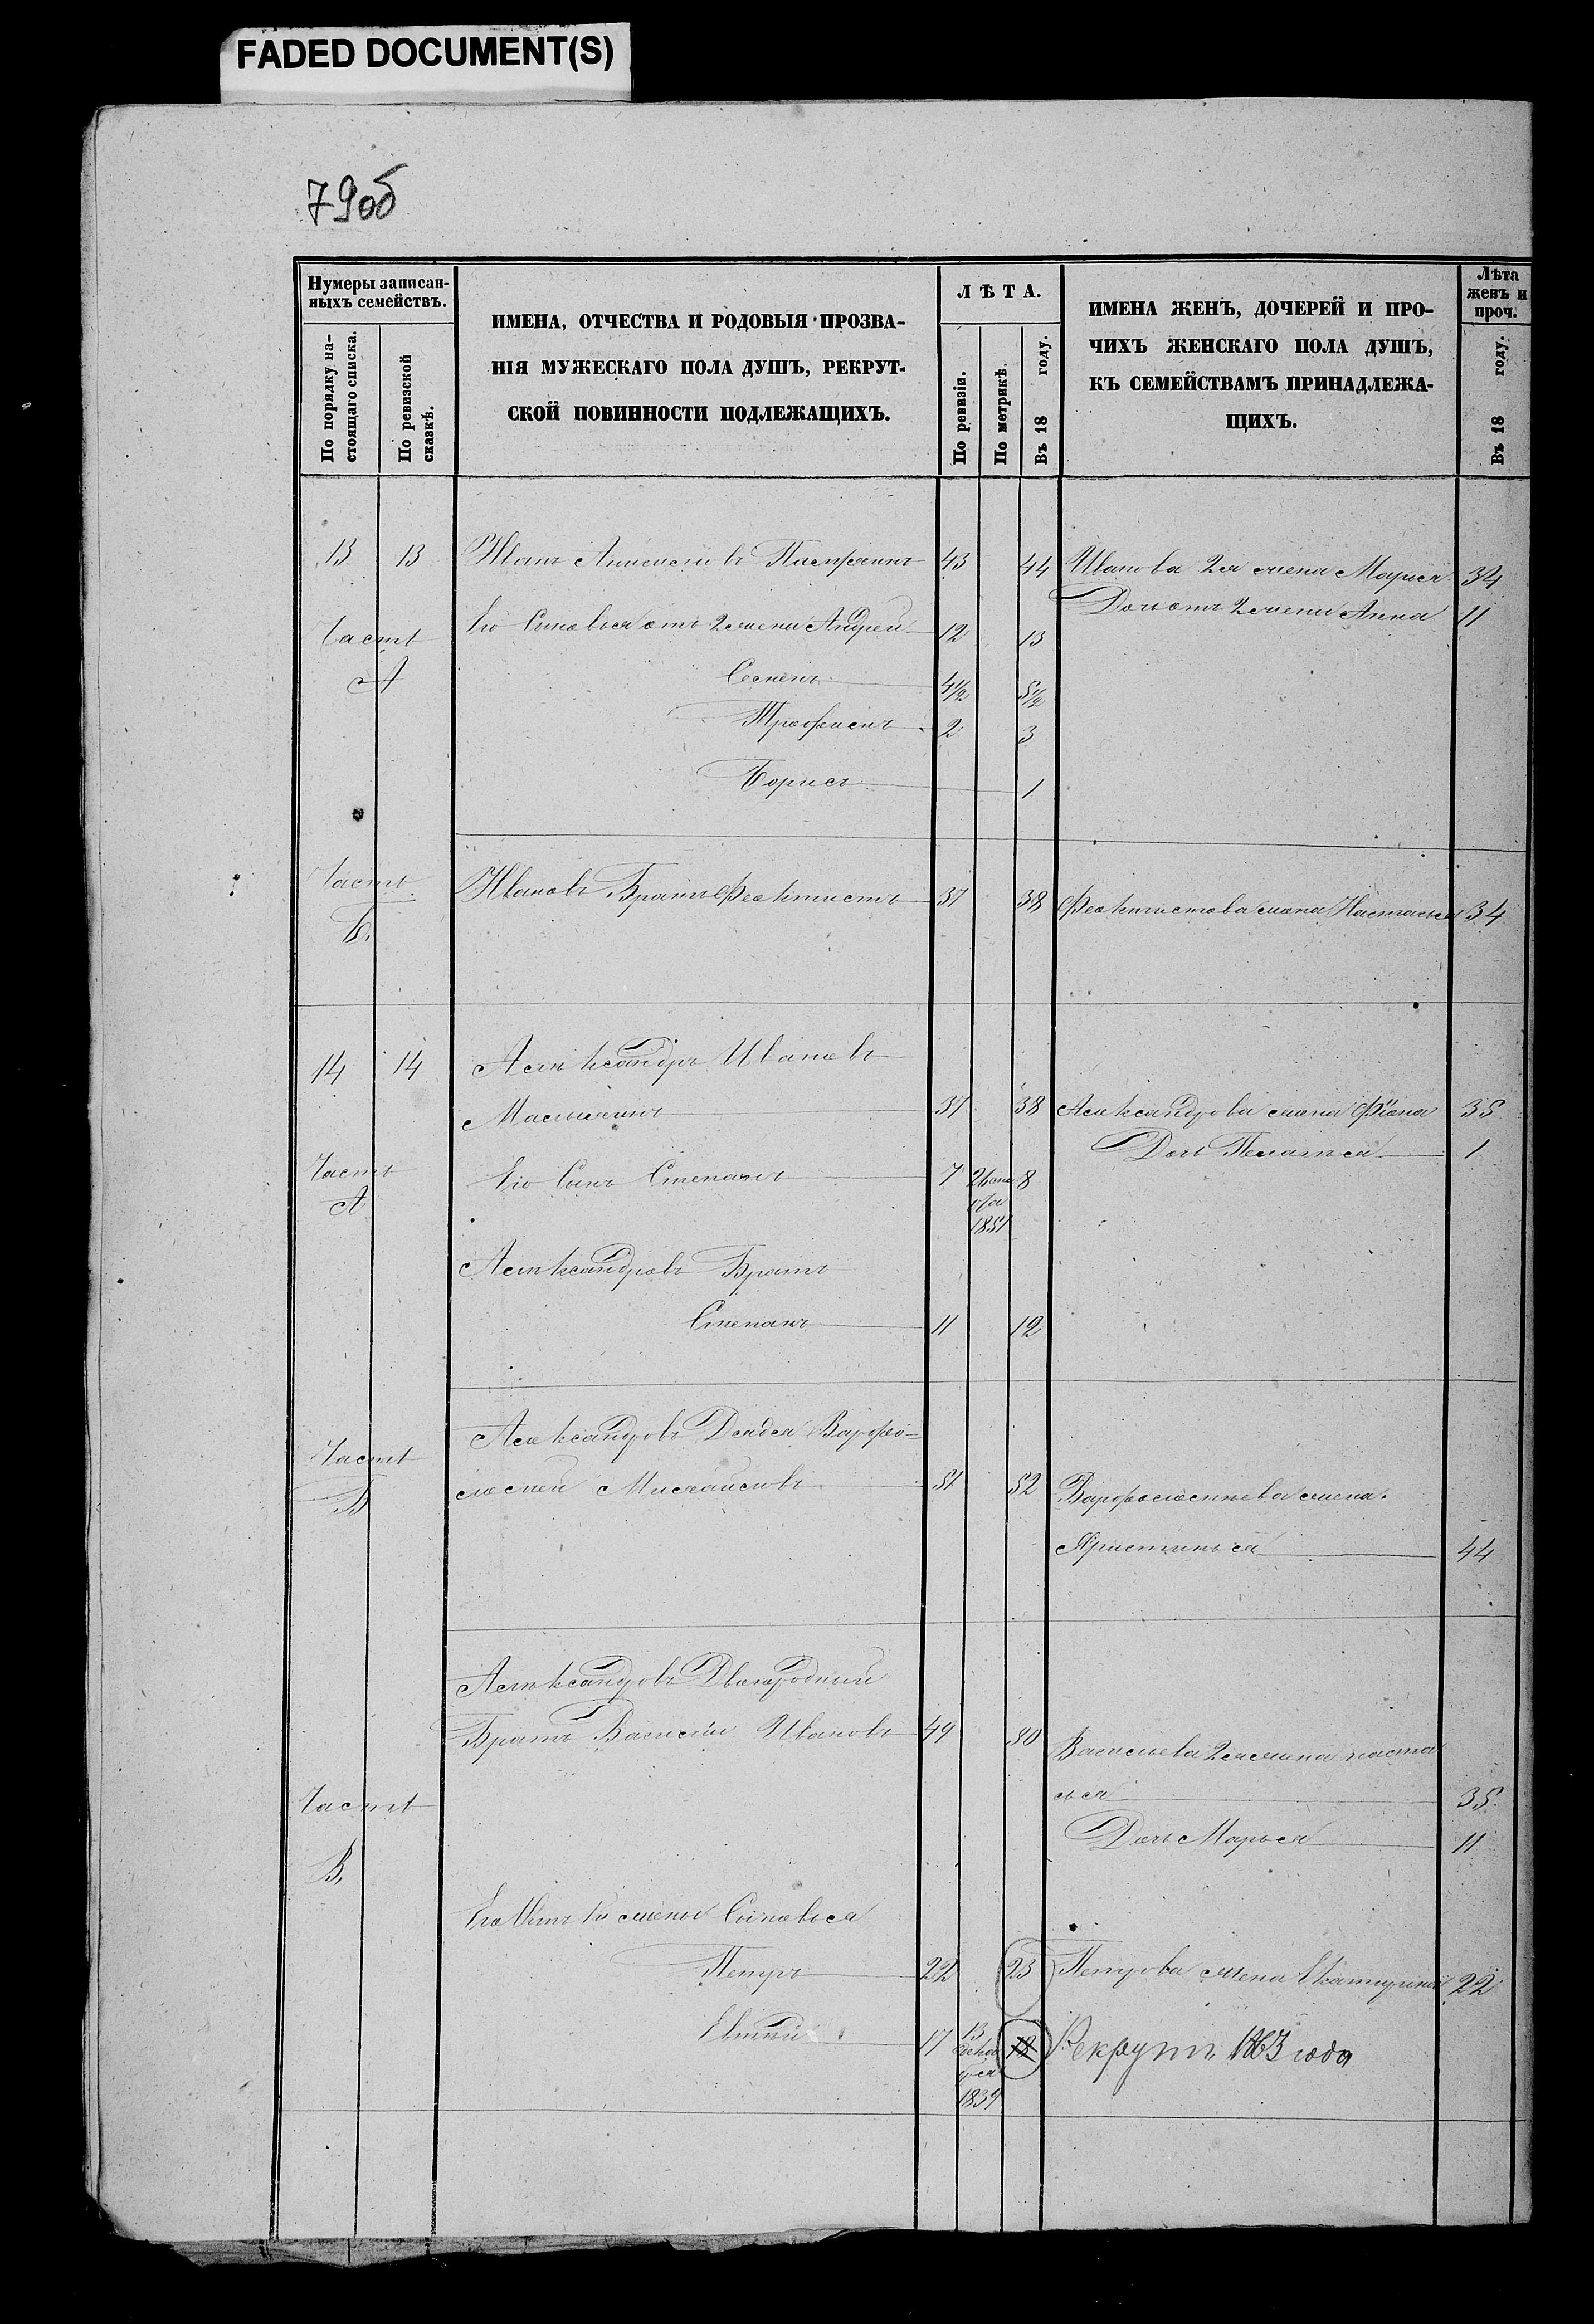 FADED DOCUMENT(S)
79об
Нумеры записан-
ныхъ семействъ.
По порядку на-
стоящаго списка.
По ревизской
сказкѣ.
ИМЕНА, ОТЧЕСТВА И РОДОВЫЯ ПРОЗВА-
НІЯ МУЖЕСКАГО ПОЛА ДУШЪ, РЕКРУТ-
СКОЙ ПОВИННОСТИ ПОДЛЕЖАЩИХЪ.
ЛѢТА.
По ревизіи.
По метрикѣ.
Въ 18 году.
ИМЕНА ЖЕНЪ, ДОЧЕРЕЙ И ПРО-
ЧИХЪ ЖЕНСКАГО ПОЛА ДУШЪ,
КЪ СЕМЕЙСТВАМЪ ПРИНАДЛЕЖА-
ЩИХЪ.
Лѣта
женъ и
проч.
Въ 18 году.
13 13 Иванъ 43 44 Иванова 2я жена Марья 34
Дочь отъ 2 жены Анна 11
Часть Его Сыновья отъ 2 жены Андрей 12 13
А
Семенъ 4½ 5½
Трофимъ 2 3
Борисъ 1
Часть Ивановъ Братъ Феоктистъ 37 38 Феоктистова жена Настасья 34
Б.
14 14 Александръ Ивановъ
37 38 Александрова жена 35
Дочь Пелагея 1
Часть Его Сынъ Степанъ 7 8
А 1851
Александровъ Братъ
Степанъ 11 12
Часть Александровъ Дядя Варфо-
Б ломей Михайловъ 51 52 Варфоломеева жена
44
Александровъ Двоюродный
Братъ Василій Ивановъ 49 50 Васильева 2я жена Наста
сья 35
Часть Дочь Марья 11
В.
Его отъ 1й жены Сыновья
Петръ 22 23 Петрова жена Екатерина 22
17 13 18 Рекрутъ 1863 года
1839